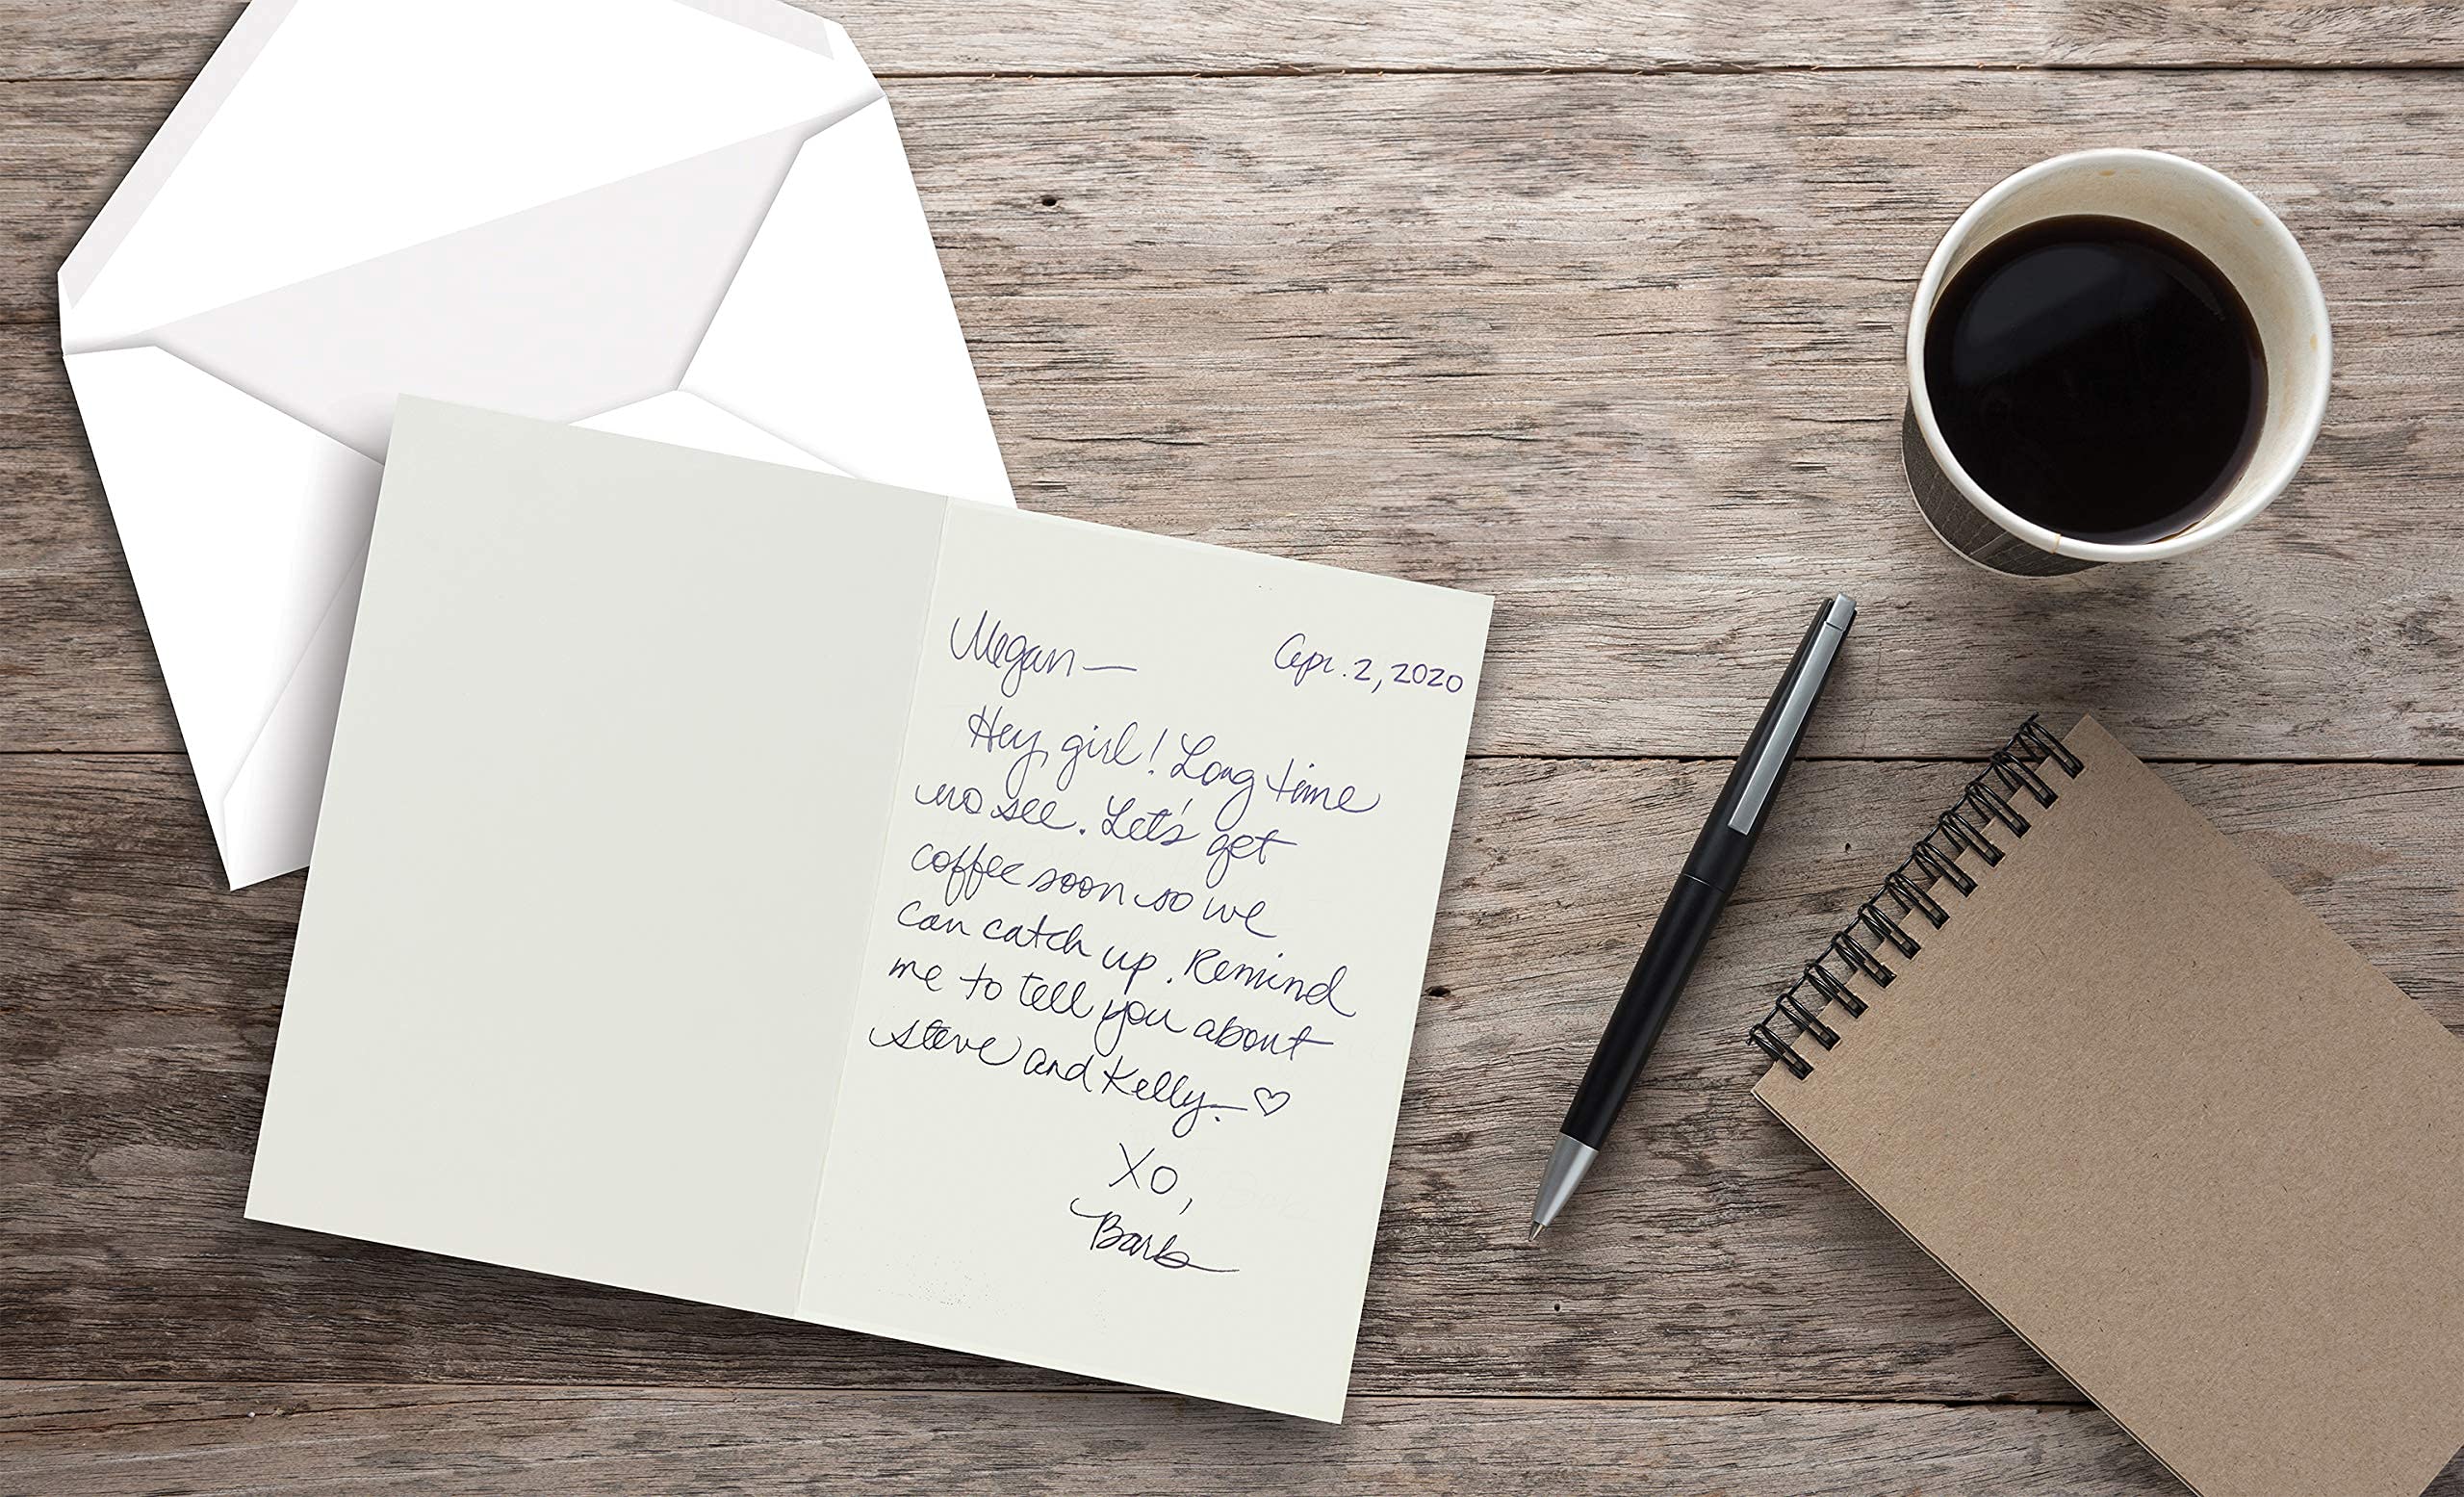 Megan— Apr. 2, 2020
Hey, girl! Long time
no see. Let's get
coffee soon so we
can catch up. Remind
me to tell you about
Steve and Kelly.— ♡
XO,
Barb